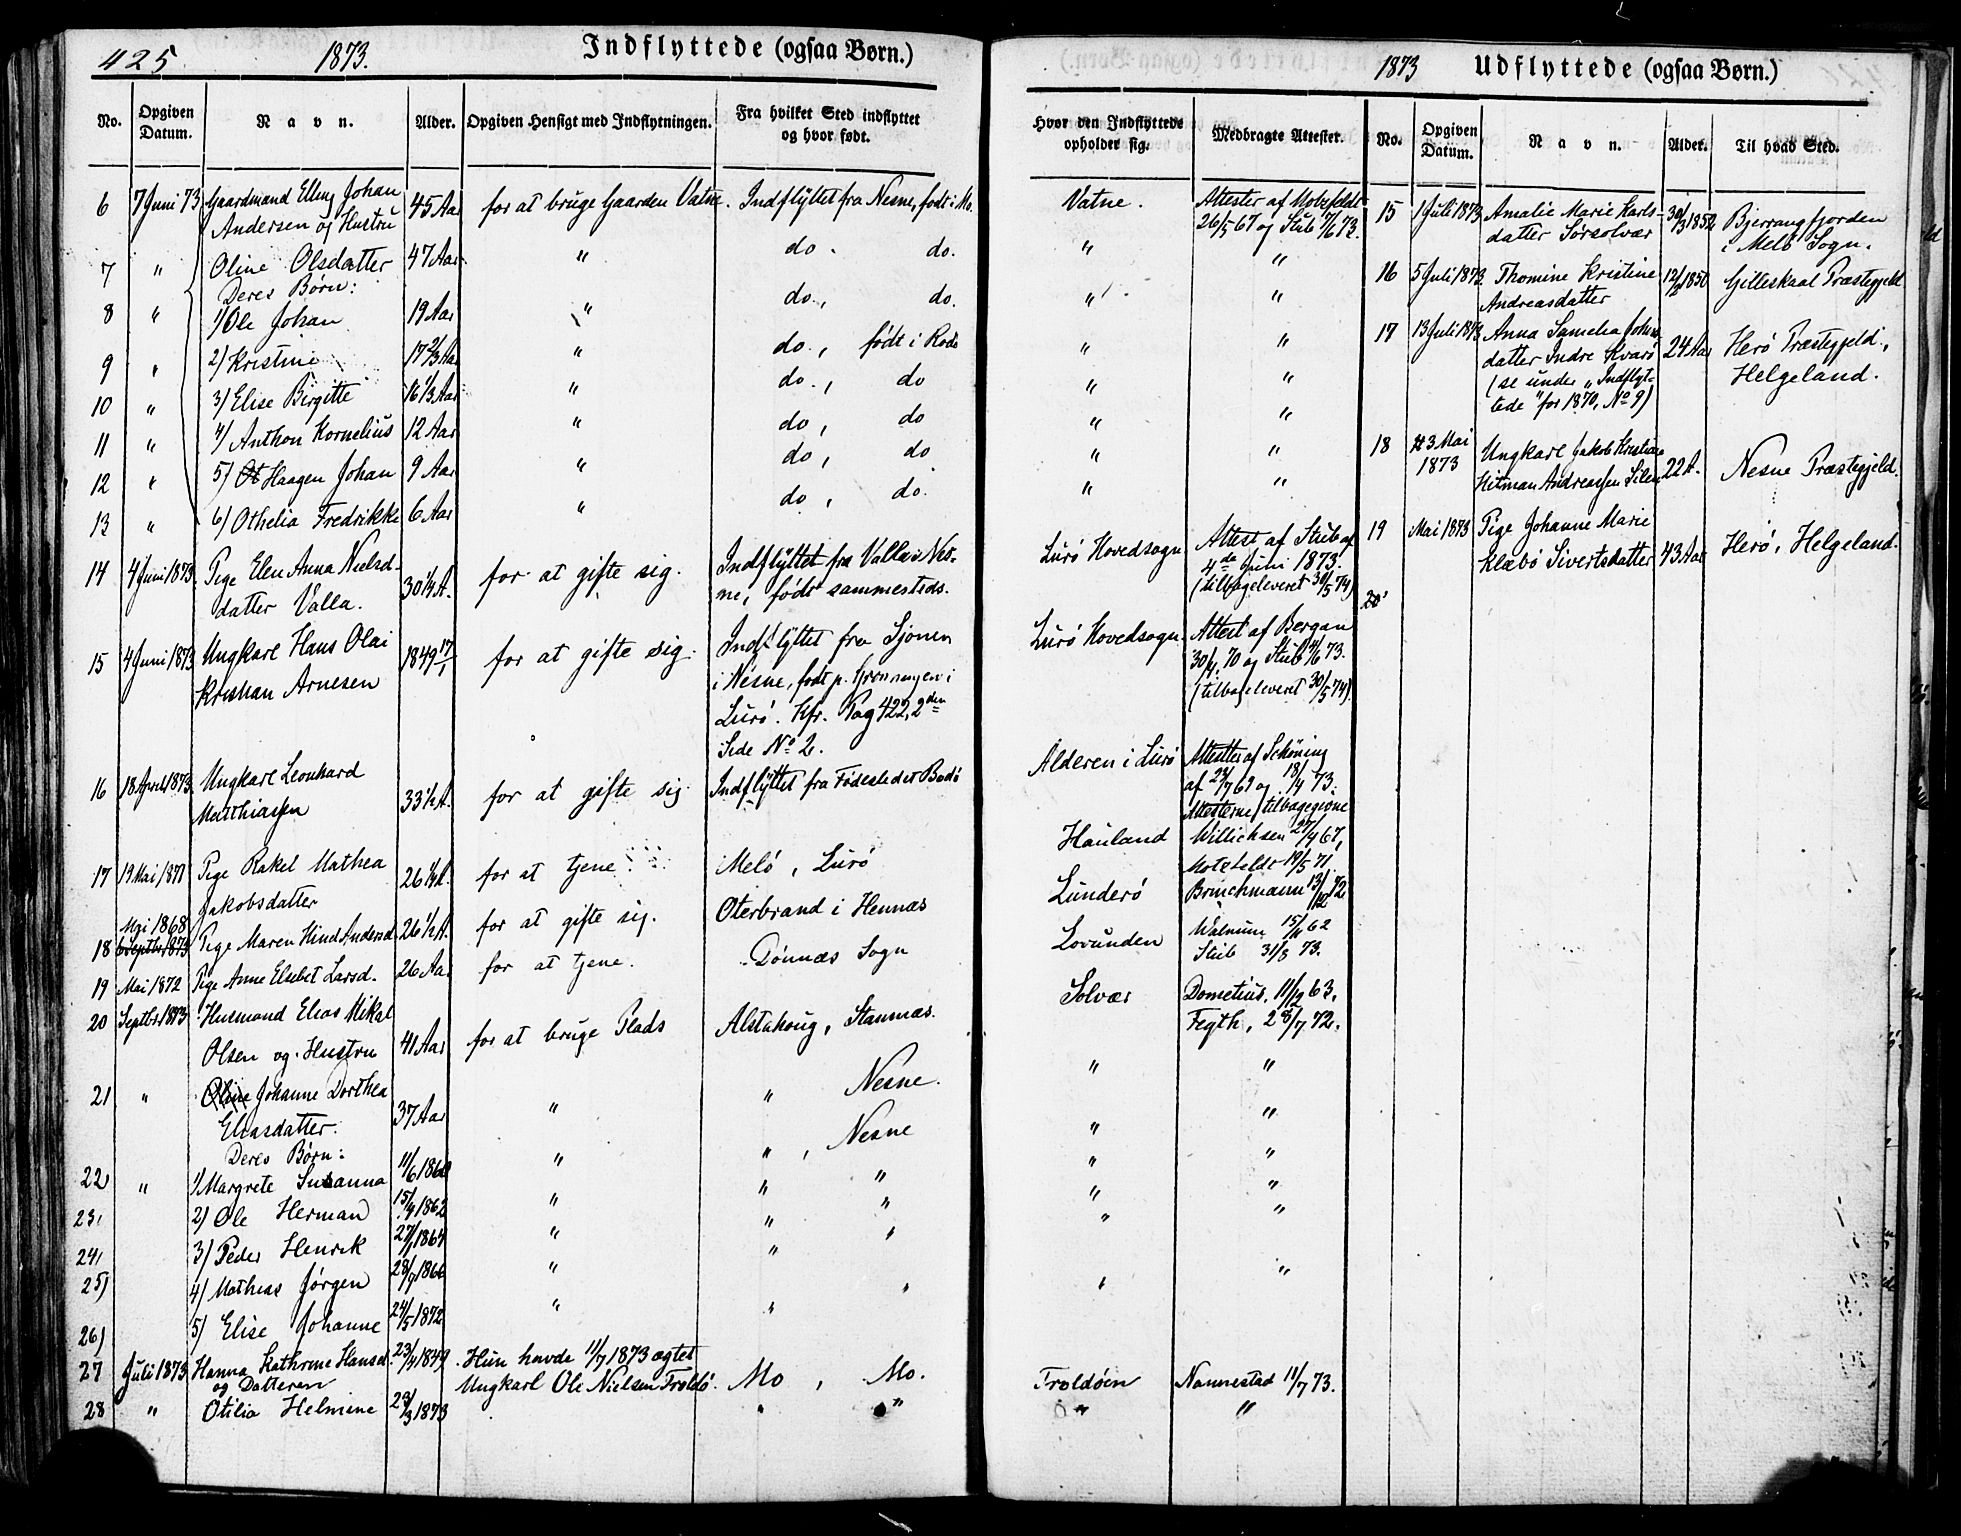 425 1873. Indflyttede (ogsaa Børn.)
No. Opgiven Datum. Navn. Alder. Opgiven Hensigt med Indflytningen. Fra hvilket Sted indflyttet og hvor født.
6 7 Juni 73 Gaardmand Elling Johan 45 Aar for at bruge Gaarden Vatne. Indflyttet fra Nesne, født i Mo.
Andersen og Hustru
7 " Oline Olsdatter 47 Aar " do. do.
Deres Børn:
8 " 1) Ole Johan 19 Aar " do., do.
9 " 2) Kristine 17 2/3 Aar " do., født i Rødø
10 " 3) Elise Birgitte 16 1/3 Aar " do., do
11 " 4) Anthon Kornelius 12 Aar " do, do
12 " 5) Haagen Johan 9 Aar " do, do
13 " 6) Othelia Fredrikke 6 Aar " do, do.
14 4 Juni 1873 Pige Elen Anna Nielsd- 30 1/4 A. for at gifte sig. Indflyttet fra Valla i Nes-
datter Valla. ne, født sammesteds.
15 4 Juni 1873 Ungkarl Hans Olai 1849 17/1 for at gifte sig. Indflyttet fra Sjonen
Kristian Arnesen i Nesne, født p. Grønningen i
Lurø. Kfr. Pag 422, 2den
Side No 2.
16 18 April 1873 Ungkarl Leonhard 33 1/2 A. for at gifte sig. Indflyttet fra Fødestedet Bodø
Matthiassen
17 19 Mai 1871 Pige Rakel Mathea 26 1/4 A. for at tjene Melø, Lurø
Jakobsdatter
Mai 1868
18 Septbr 1873 Pige Maren Hind Andersd. 26 1/2 A. for at gifte sig. Oterbrand i Hennæs
19 Mai 1872 Pige Anne Elsebet Larsd. 26 Aar for at tjene. Dønnæs Sogn
20 Septbr 1873 Husmand Elias Mikal
Olsen og Hustru 41 Aar for at bruge Plads Alstahoug, Stamnæs.
21 " Oline Johanne Dorthea 37 Aar " " Nesne.
Eliasdatter.
Deres Børn:
22 " 1) Margrete Susanna 11/6 1860 " " , Nesne
23, 2) Ole Herman 15/4 1862 " " "
24, 3) Peder Henrik 27/1 1864 " " "
25) 4) Mathias Jørgen 28/9 1866 " " "
26) 5) Elise Johanne 24/5 1872 " " "
27 Juli 1873 Hanna Kathrine Hansd. 23/4 1849 Hun havde 11/7 1873 ægtet
og Datteren Ungkarl Ole Nielsen Troldø. Mo, Mo.
28 " Otilia Helmine 23/3 1873 " "
1873 Udflyttede (ogsaa Børn.)
Hvor den Indflyttede opholder sig. Medbragte Attester. No. Opgiven Datum. Navn. Alder. Til hvad Sted.
Vatne. Attester af Motzfeldt
26/5 67 og Stub 7/6 73.
" "
" "
" "
" "
" "
" "
" "
Lurø Hovedsogn Attest af Stub af
4de Juni 1873.
(tilbageleveret 30/5 74)
Lurø Hovedsogn. Attest af Bergan
30/4 70 og Stub 4/6 73.
(tilbageleveret 30/5 74).
Alderen i Lurø Attester af Schöning
af 23/7 67 og 18/4 73.
Attesterne tilbagegivne
Hauland Willichsen 27/4 67,
Motzfeldt 19/5 71.
Lunderø Brinchmann 13/12 72
Lovunden Walnum 15/11 62
Stub 31/8 73.
Solvær Dometius, 11/12 63,
Fegth, 28/7 72.
" "
" "
" "
" "
" "
" "
Troldøen Nannestad 11/7 73.
" "
15 1 Juli 1873 Amalie Marie Karls- 30/3 1852 Bjerrangfjorden
datter Sørsolvær i Melø Sogn.
16 5 Juli 1873 Thomine Kristine 12/2 1850 Gilleskaal Præstegjeld
Andreasdatter
17 13 Juli 1873 Anna Samelia Johns-
datter Indre Kvarø 24 Aar Herø Præstegjeld,
(se under "Indflyt- Helgeland.
tede" for 1870, No 9)
18 23 Mai 1873 Ungkarl Jakob Kristian 22 A. Nesne Præstegjeld.
Hitman Andreassen Silen
19 Mai 1873 Pige Johanne Marie
Klæbø Sivertsdatter 43 Aar Herø, Helgeland.
20